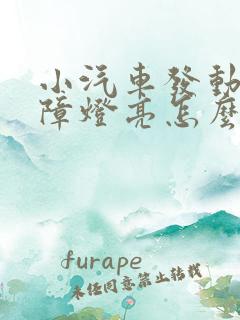 小汽車發動
障燈亮怎麼
furape
未經同意禁止轉載